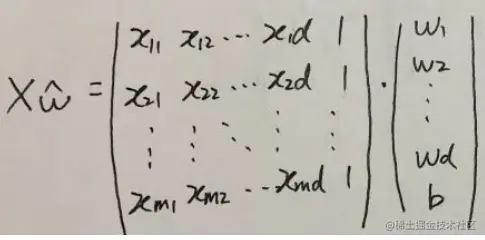 Xŵ = | x11 x12 ⋯ x1d 1 | · | w1 |
| x21 x22 ⋯ x2d 1 | | w2 |
| ⋮ ⋮ ⋱ ⋮ ⋮ | | ⋮ |
| xm1 xm2 ⋯ xmd 1 | | wd |
| b |
@稀土掘金技术社区